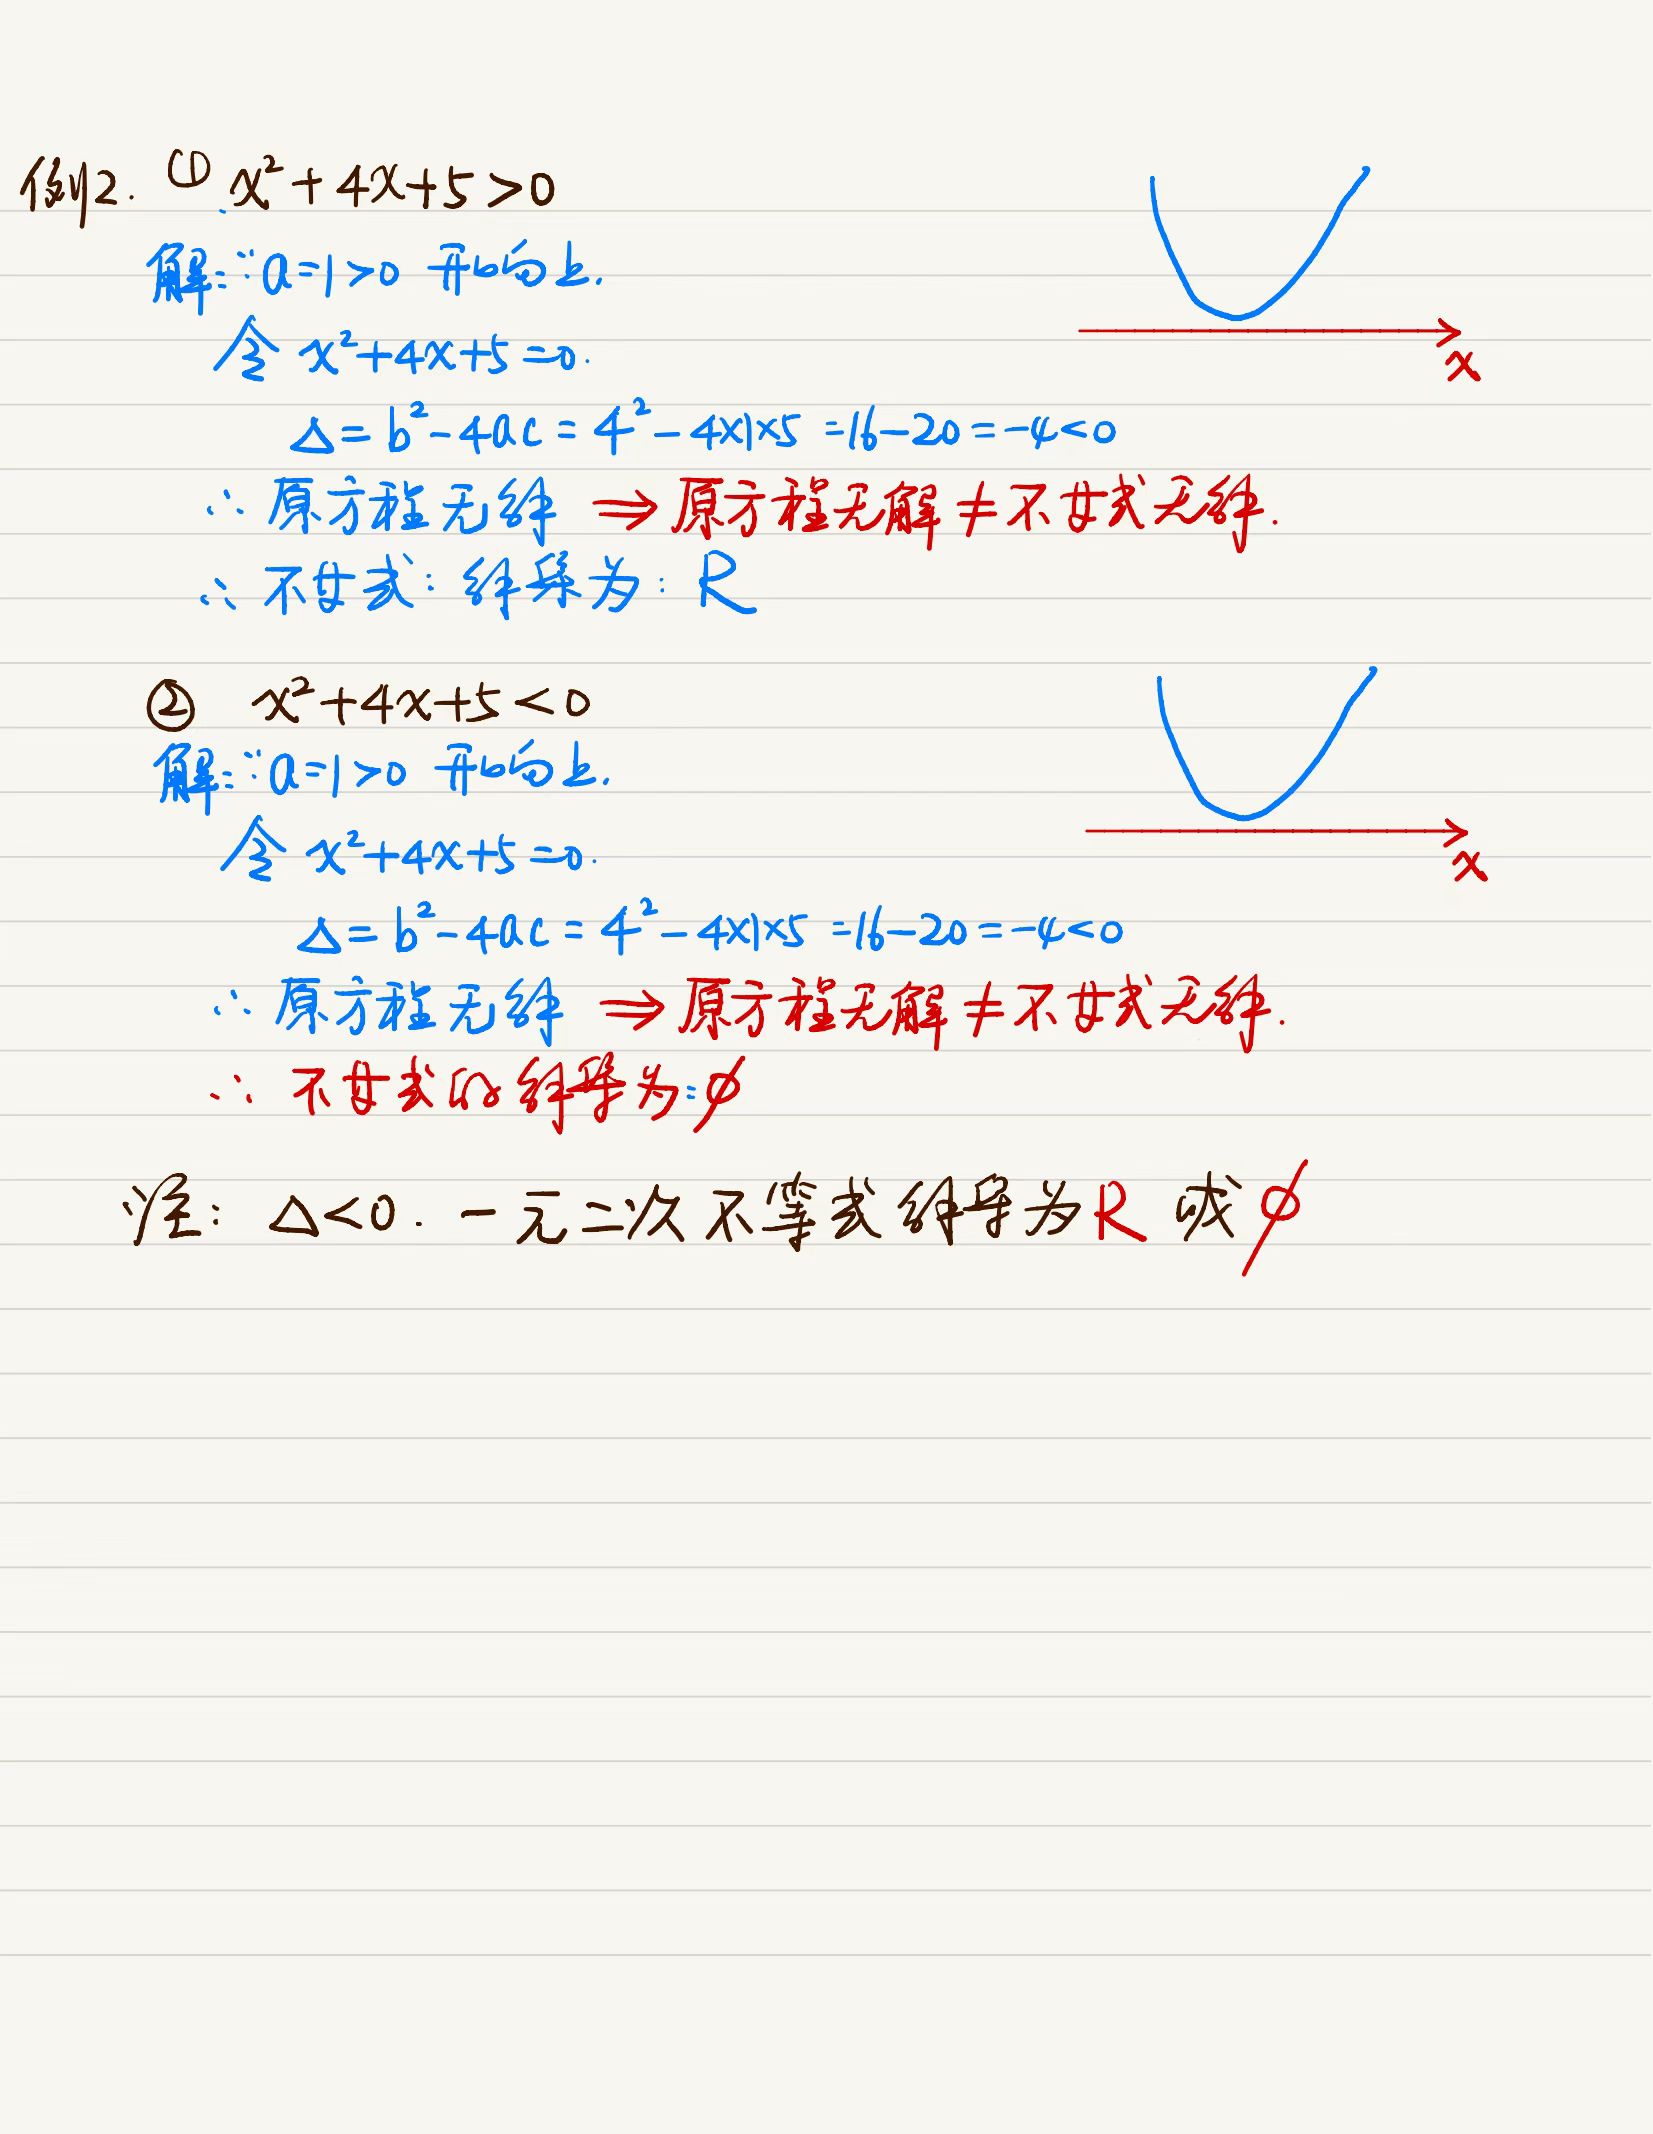 例2. ① x²+4x+5>0
解:∵a=1>0 开口向上.
令 x²+4x+5=0.
x
Δ=b²-4ac=4²-4×1×5=16-20=-4<0
∴原方程无解 ⇒原方程无解≠不等式无解.
∴不等式:解集为:R
② x²+4x+5<0
解:∵a=1>0 开口向上.
令 x²+4x+5=0.
x
Δ=b²-4ac=4²-4×1×5=16-20=-4<0
∴原方程无解 ⇒原方程无解≠不等式无解.
∴不等式的解集为:∅
注:Δ<0.一元二次不等式解集为R或∅